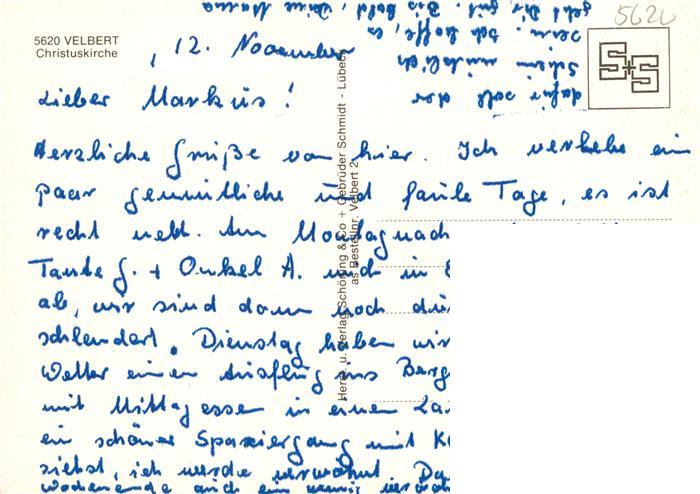 5620 VELBERT
Christuskirche
5620
12. November
Lieber Markus!
Herzliche Grüße von hier. Ich verlebe ein
paar gemütliche und faule Tage, es ist
recht nett. Am Montagnach
Tante G. + Onkel A. mich in
ab, wir sind dann noch
schlendert. Dienstag haben wir
Wetter einen Ausflug ins Berg
mit Mittagessen in einem
ein schöner Spaziergang mit
siehst, ich werde verwöhnt. Da
Wochenende auch ein wenig
dafür soll der
Schein nützlich
sein. Ich hoffe, es
geht Dir gut. Bis bald, Deine
Herst. u. Verlag Schöning & Co + Gebrüder Schmidt - Lübeck
as Bestellnr. Velbert 2
S+S